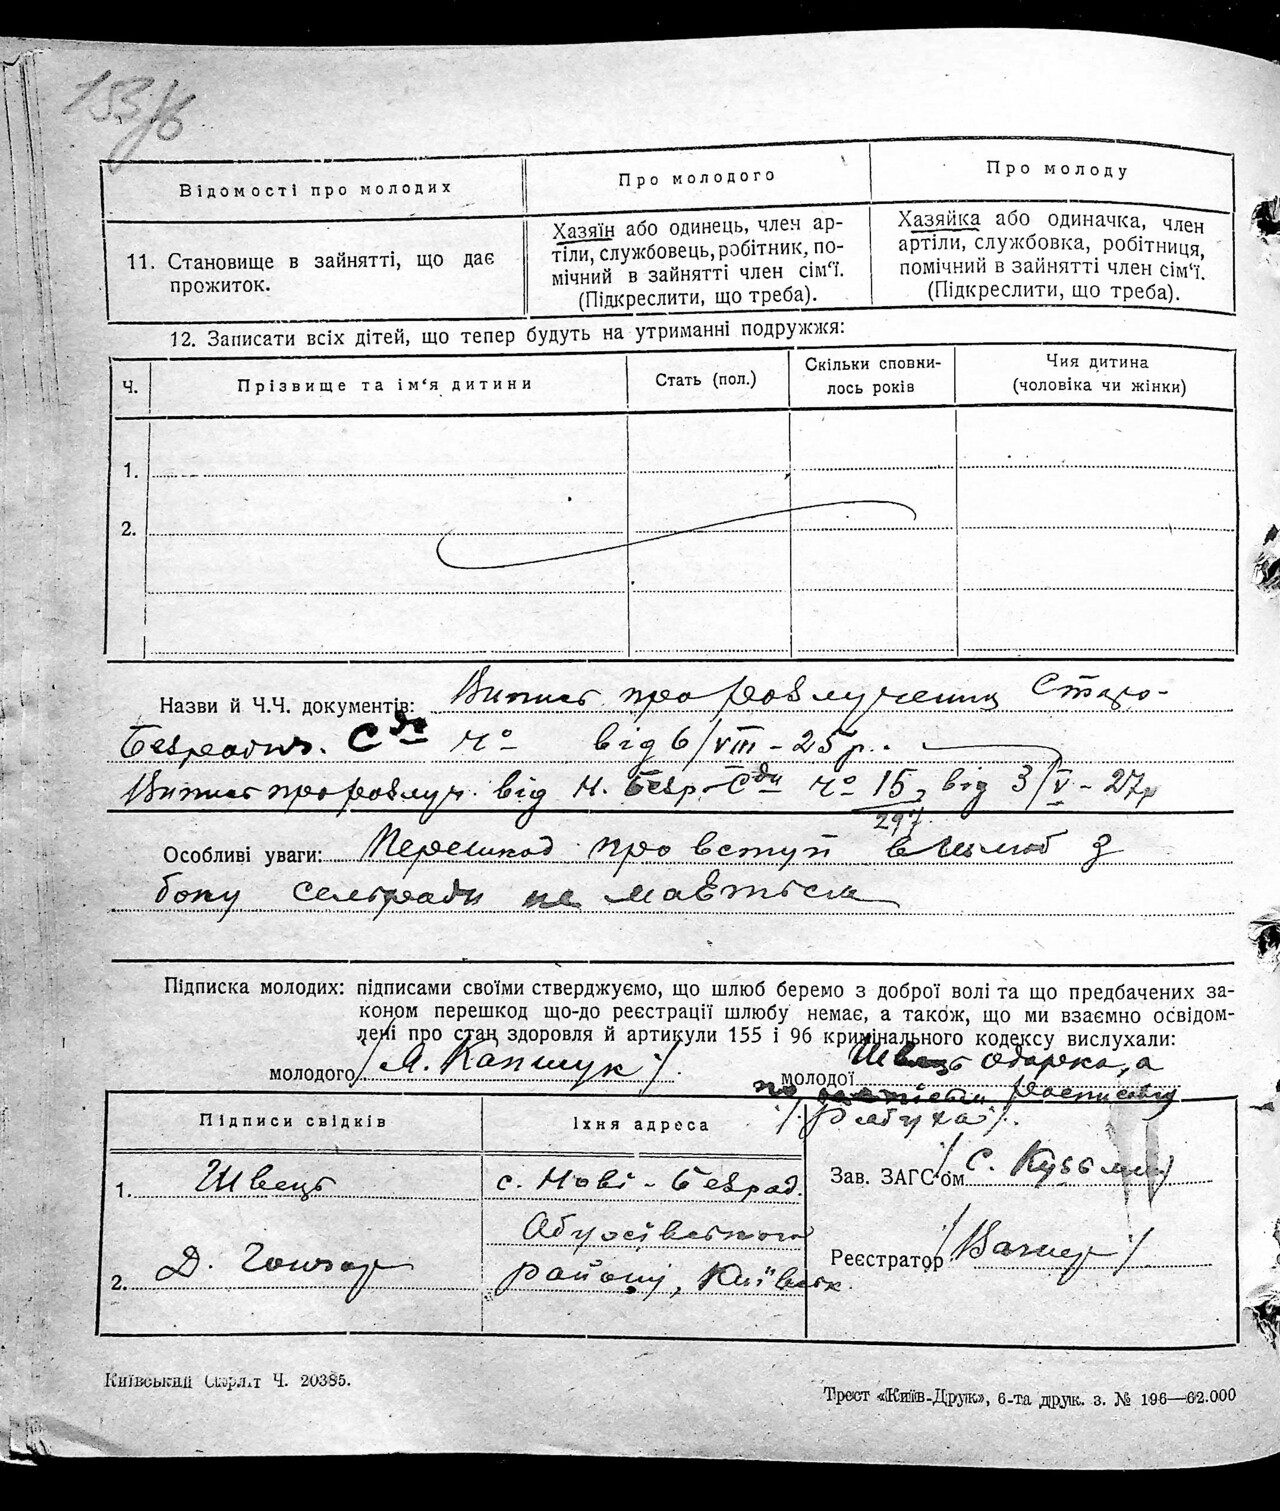 Відомості про молодих
Про молодого
Про молоду
11. Становище в зайнятті, що дає
прожиток.
Хазяїн або одинець, член ар-
тіли, службовець, робітник, по-
мічний в зайнятті член сім'ї.
(Підкреслити, що треба).
Хазяйка або одиначка, член
артіли, службовка, робітниця,
помічний в зайнятті член сім'ї.
(Підкреслити, що треба).
12. Записати всіх дітей, що тепер будуть на утриманні подружжя:
Ч.
Прізвище та ім'я дитини
Стать (пол.)
Скільки сповни-
лось років
Чия дитина
(чоловіка чи жінки)
1.
2.
Назви й Ч.Ч. документів: Випис про розлучення Старо-
Безрадич. С/ди Чо від 6/VIII - 25 р.
Випис про розлуч. від Н. Безр. С/ди Чо 15/297, від 3/V - 27 р
Особливі уваги: Перешкод про вступ в шлюб з
боку сельради не мається
Підписка молодих: підписами своїми стверджуємо, що шлюб беремо з доброї волі та що предбачених за-
коном перешкод що-до реєстрації шлюбу немає, а також, що ми взаємно освідом-
лені про стан здоровля й артикули 155 і 96 кримінального кодексу вислухали:
молодого /А. Капшук/
молодої Швець Одарка, а
по
Підписи свідків
Їхня адреса
1. Швець
с. Нові-Безрад.
Обухівського
2. Д. Гончар
району, Київськ.
Зав. ЗАГС'ом /С. Кузьм
Реєстратор
Київський Окрліт Ч. 20385.
Трест «Київ-Друк», 6-та друк. з. № 196—62.000